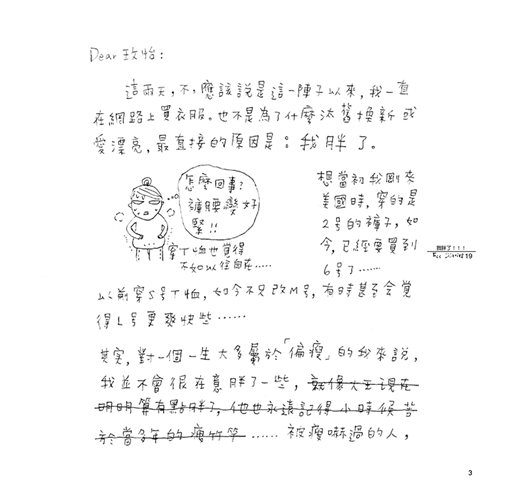 Dear 玫怡：
這兩天，不，應該說是這一陣子以來，我一直
在網路上買衣服。也不是為了什麼汰舊換新或
愛漂亮，最直接的原因是：我胖了。
怎麼回事？
褲腰變好
緊!!
穿T恤也覺得
不如以往自在……
想當初我剛來
美國時，穿的是
2号的褲子，如
今，已經要買到
6号了……
以前穿S号T恤，如今不只改M号，有時甚至会覺
得L号更爽快些……
其実，對一個一生大多屬於「偏瘦」的我來說，
我並不會很在意胖了一些，就像大王現在
明明算有點胖了，他也永遠記得小時候苦
於當多年的瘦竹竿……被瘦嚇過的人，
19
3